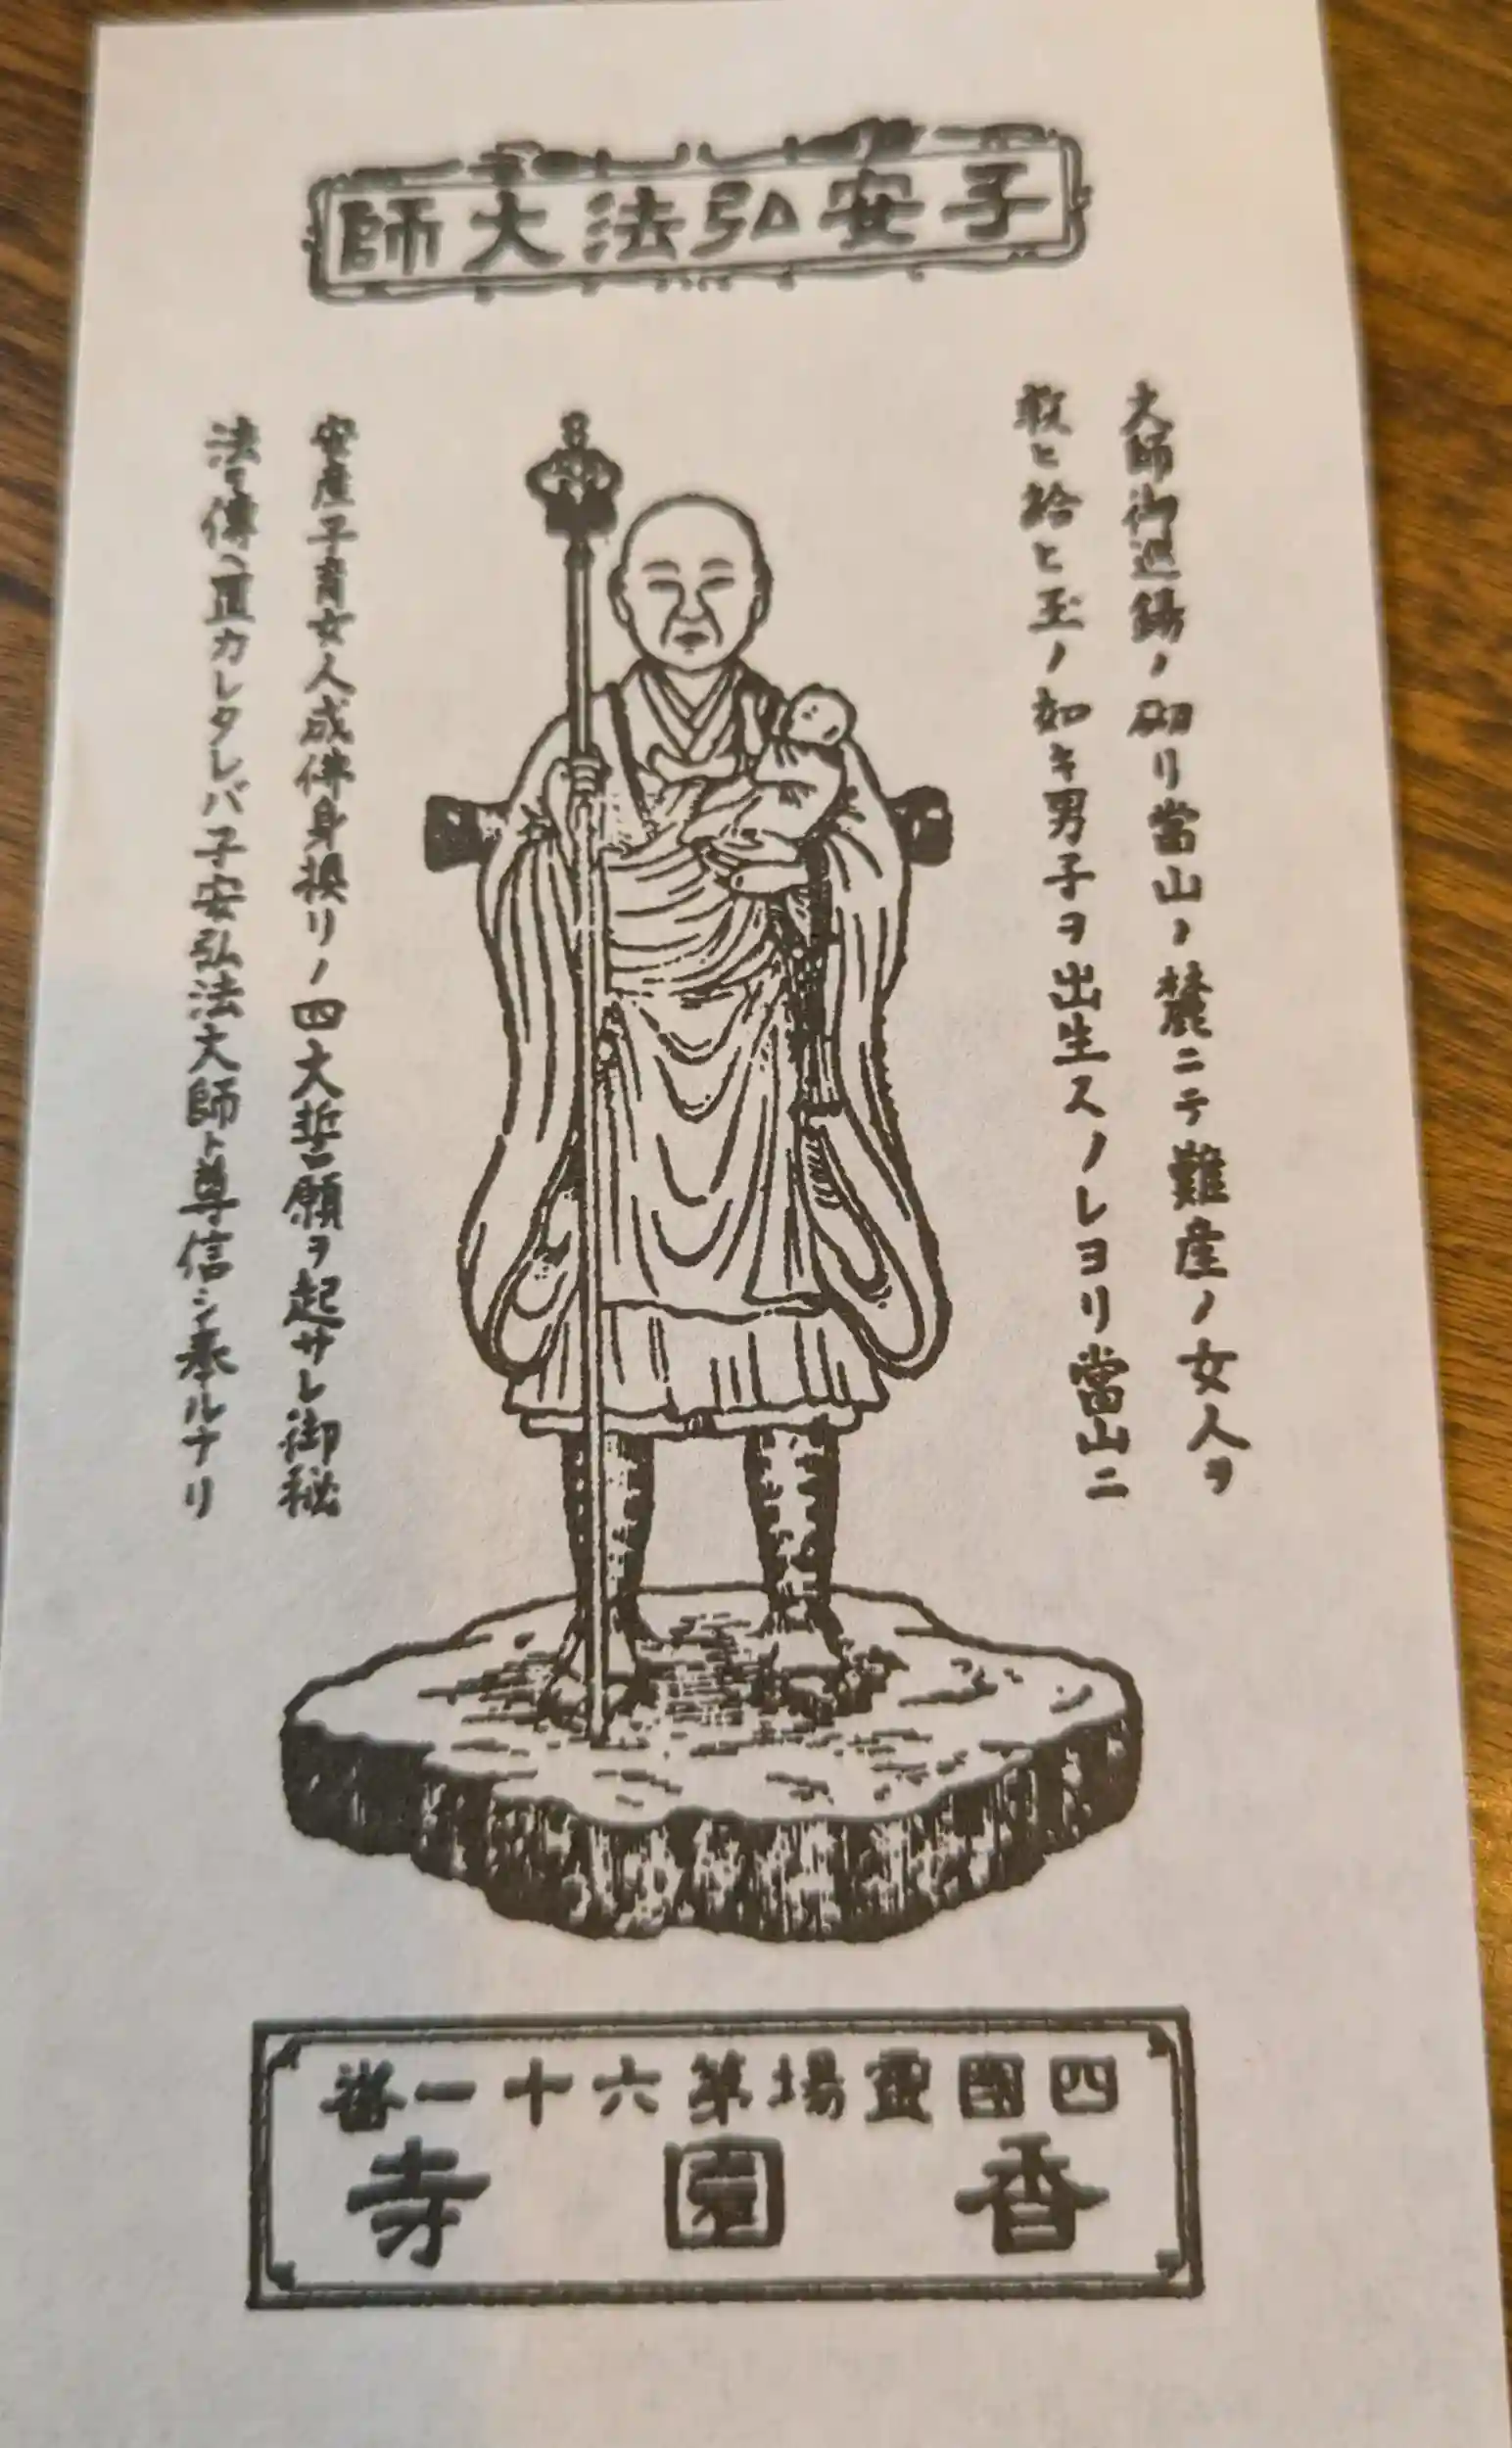 子安弘法大師
大師御巡錫ノ砌リ當山ノ麓ニテ難産ノ女人ヲ
救ヒ給ヒ玉ノ如キ男子ヲ出生スノレヨリ當山ニ
安産子育女人成佛身換リノ四大誓願ヲ起サレ御秘
法ヲ傳ヘ置カレタレバ子安弘法大師ト尊信シ奉ルナリ
四國霊場第六十一番
香園寺